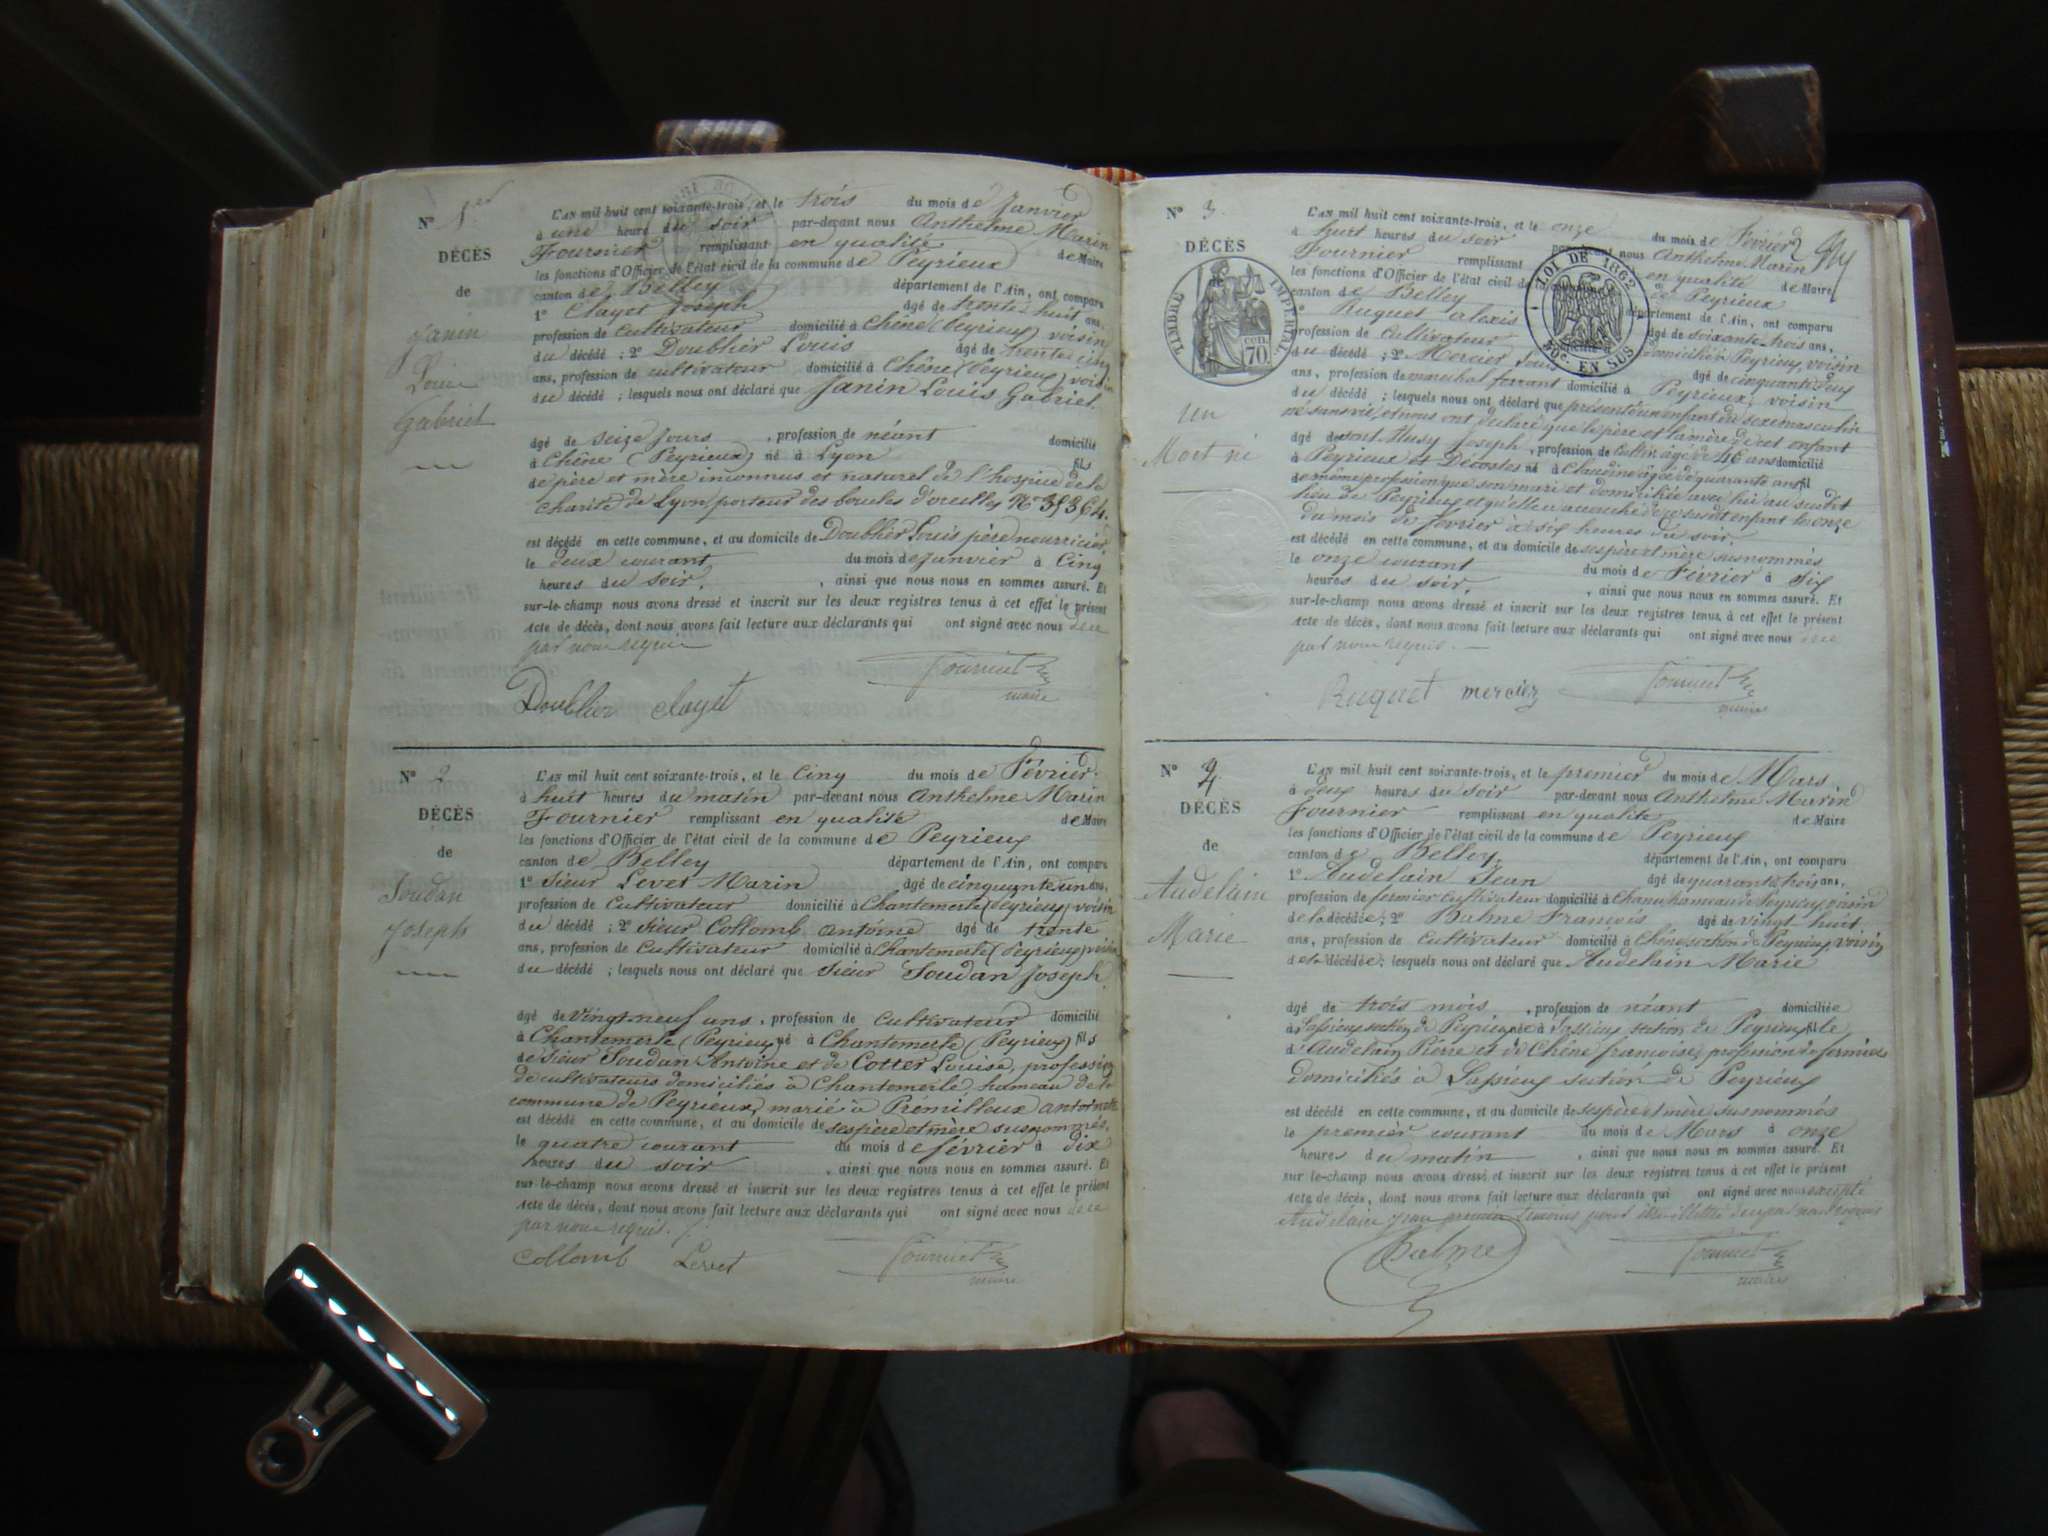 N° 1er
DÉCÈS
de
Janin
Louis
Gabriel
L'AN mil huit cent soixante-trois, et le trois du mois de Janvier
à une heure du soir par-devant nous Anthelme Marin
Fournier remplissant en qualité de Maire
les fonctions d'Officier de l'état civil de la commune de Peyrieux
canton de Belley département de l'Ain, ont comparu
1° Clayet Joseph âgé de trente huit ans,
profession de cultivateur domicilié à Chêne (Peyrieux) voisin
du décédé ; 2° Doublier Louis âgé de trente cinq
ans, profession de cultivateur domicilié à Chêne (Peyrieux) voisin
du décédé ; lesquels nous ont déclaré que Janin Louis Gabriel
âgé de seize jours , profession de néant domicilié
à Chêne (Peyrieux) né à Lyon fils
de père et mère inconnus et naturel de l'hospice de la
charité de Lyon, porteur des boucles d'oreilles N°
est décédé en cette commune, et au domicile de Doublier Louis père nourricier,
le deux courant du mois de Janvier à Cinq
heures du soir, , ainsi que nous nous en sommes assuré. Et
sur-le-champ nous avons dressé et inscrit sur les deux registres tenus à cet effet le présent
Acte de décès, dont nous avons fait lecture aux déclarants qui ont signé avec nous de ce
par nous requis
Doublier Clayet Fournier
maire
N° 2
DÉCÈS
de
Soudan
Joseph
L'AN mil huit cent soixante-trois, et le cinq du mois de Février
à huit heures du matin par-devant nous Anthelme Marin
Fournier remplissant en qualité de Maire
les fonctions d'Officier de l'état civil de la commune de Peyrieux
canton de Belley département de l'Ain, ont comparu
1° Sieur Levet Marin âgé de cinquante un ans,
profession de Cultivateur domicilié à Chantemerle (Peyrieux) voisin
du décédé ; 2° Sieur Collomb antoine âgé de trente
ans, profession de Cultivateur domicilié à Chantemerle (Peyrieux) voisin
du décédé ; lesquels nous ont déclaré que Sieur Soudan Joseph
âgé de vingt neuf ans , profession de Cultivateur domicilié
à Chantemerle (Peyrieux) né à Chantemerle (Peyrieux) fils
de Sieur Soudan Antoine et de Cotter Louise, profession
de cultivateurs domiciliés à Chantemerle hameau de la
commune de Peyrieux, marié à Prémilleux antoinette
est décédé en cette commune, et au domicile de ses père et mère susnommés,
le quatre courant du mois de février à dix
heures du soir , ainsi que nous nous en sommes assuré. Et
sur-le-champ nous avons dressé et inscrit sur les deux registres tenus à cet effet le présent
Acte de décès, dont nous avons fait lecture aux déclarants qui ont signé avec nous de ce
par nous requis.
Collomb Levet Fournier
maire
N° 3
DÉCÈS
TIMBRE IMPÉRIAL
CEN.
70
un
Mort né
L'AN mil huit cent soixante-trois, et le onze du mois de Février
à huit heures du soir par-devant nous Anthelme Marin
Fournier remplissant en qualité de Maire
les fonctions d'Officier de l'état civil de la commune de Peyrieux
canton de Belley département de l'Ain, ont comparu
LOI DE 1862
50c. EN SUS
1° Ruquet alexis âgé de soixante trois ans,
profession de Cultivateur domicilié à Peyrieux, voisin
du décédé ; 2° Mercier Louis âgé de cinquante deux
ans, profession de maréchal ferrant domicilié à Peyrieux, voisin
du décédé ; lesquels nous ont déclaré que présenté un enfant du sexe masculin
né sans vie, et nous ont déclaré que le père et la mère de cet enfant
âgé de sont Musy Joseph , profession de Cultiv. âgé de 46 ans domicilié
à Peyrieux et Décostes né à Claudine âgée de quarante ans fil
de même profession que son mari et domiciliée avec lui au susdit
lieu de Peyrieux et qu'elle a accouché de ce susdit enfant le onze
du mois de février à six heures du soir.
est décédé en cette commune, et au domicile de ses père et mère susnommés
le onze courant du mois de Février à Six
heures du soir, , ainsi que nous nous en sommes assuré. Et
sur-le-champ nous avons dressé et inscrit sur les deux registres tenus à cet effet le présent
Acte de décès, dont nous avons fait lecture aux déclarants qui ont signé avec nous de ce
par nous requis.
Ruquet mercier Fournier
maire
N° 4
DÉCÈS
de
Audelain
Marie
L'AN mil huit cent soixante-trois, et le premier du mois de Mars
à deux heures du soir par-devant nous Anthelme Marin
Fournier remplissant en qualité de Maire
les fonctions d'Officier de l'état civil de la commune de Peyrieux
canton de Belley département de l'Ain, ont comparu
1° Audelain Jean âgé de quarante trois ans,
profession de fermier cultivateur domicilié à hameau de Peyrieux, voisin
de la décédée ; 2° Balme François âgé de vingt huit
ans, profession de Cultivateur domicilié à Chêne section de Peyrieux, voisin
de la décédée ; lesquels nous ont déclaré que Audelain Marie
âgé de trois mois , profession de néant domiciliée
à Lassieux section de Peyrieux née à Lassieux section de Peyrieux fille
d'Audelain Pierre et de Chêne françoise, profession de fermier
domiciliés à Lassieux section de Peyrieux
est décédé en cette commune, et au domicile de ses père et mère susnommés
le premier courant du mois de Mars à onze
heures du matin , ainsi que nous nous en sommes assuré. Et
sur-le-champ nous avons dressé et inscrit sur les deux registres tenus à cet effet le présent
Acte de décès, dont nous avons fait lecture aux déclarants qui ont signé avec nous excepté
Audelain Jean premier témoin pour être illettré de ce par nous requis
Balme Fournier
maire